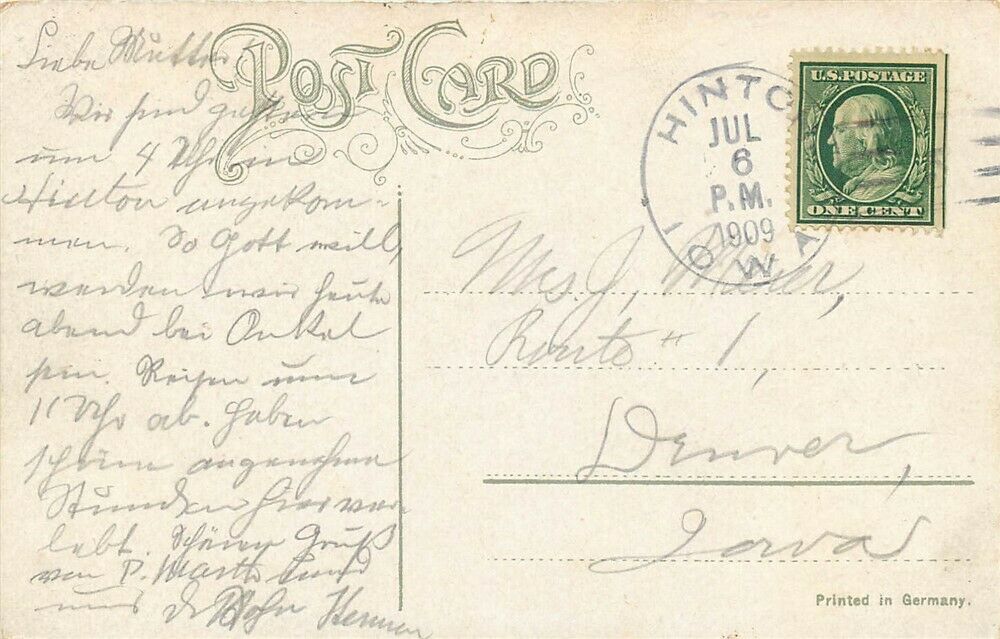 POST CARD
Liebe Mutter!
Wir sind gestern
um 4 Uhr in
Hinton angekom-
men. So Gott will,
werden wir heute
abend bei Onkel
sein. Reisen um
11 Uhr ab. Haben
schöne angenehme
Stunden hier ver-
lebt. Schönen Gruß
von P. und
uns
HINTON
JUL
6
P.M.
1909
IOWA
U.S. POSTAGE
ONE CENT
Mrs. J. Meier,
Route # 1,
Denver,
Iowa
Printed in Germany.